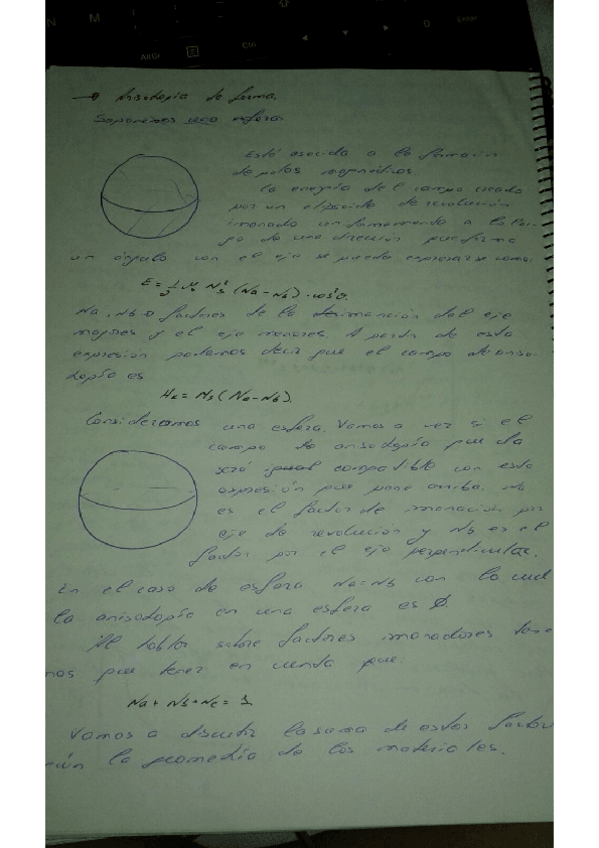 N M
AltGr Ctrl 0 Enter
→ Anisotropía de forma.
Suponemos una esfera
Está asociada a la formación
de polos magnéticos.
La energía del campo creado
por un elipsoide de revolución
imanado uniformemente a lo lar-
go de una dirección que forma
un ángulo con el eje se puede expresarse como:
E = 1/2 μ₀ Ms² (Na - Nb) · cos²θ.
Na, Nb factores de la desimanación del eje
mayores y el eje menores. A partir de esta
expresión podemos decir que el campo de aniso-
tropía es
Hk = Ms (Na - Nb).
Consideramos una esfera. Vamos a ver si el
campo de anisotropía que da
será compatible con esta
expresión que pone arriba. Na
es el factor de imanación por
eje de revolución y Nb es el
factor por el eje perpendicular.
En el caso de esfera Na = Nb con lo cual
la anisotropía en una esfera es 0.
Al hablar sobre factores imanadores tene
mos que tener en cuenta que:
Na + Nb + Nc = 1
Vamos a discutir la suma de estos factor
según la geometría de los materiales.